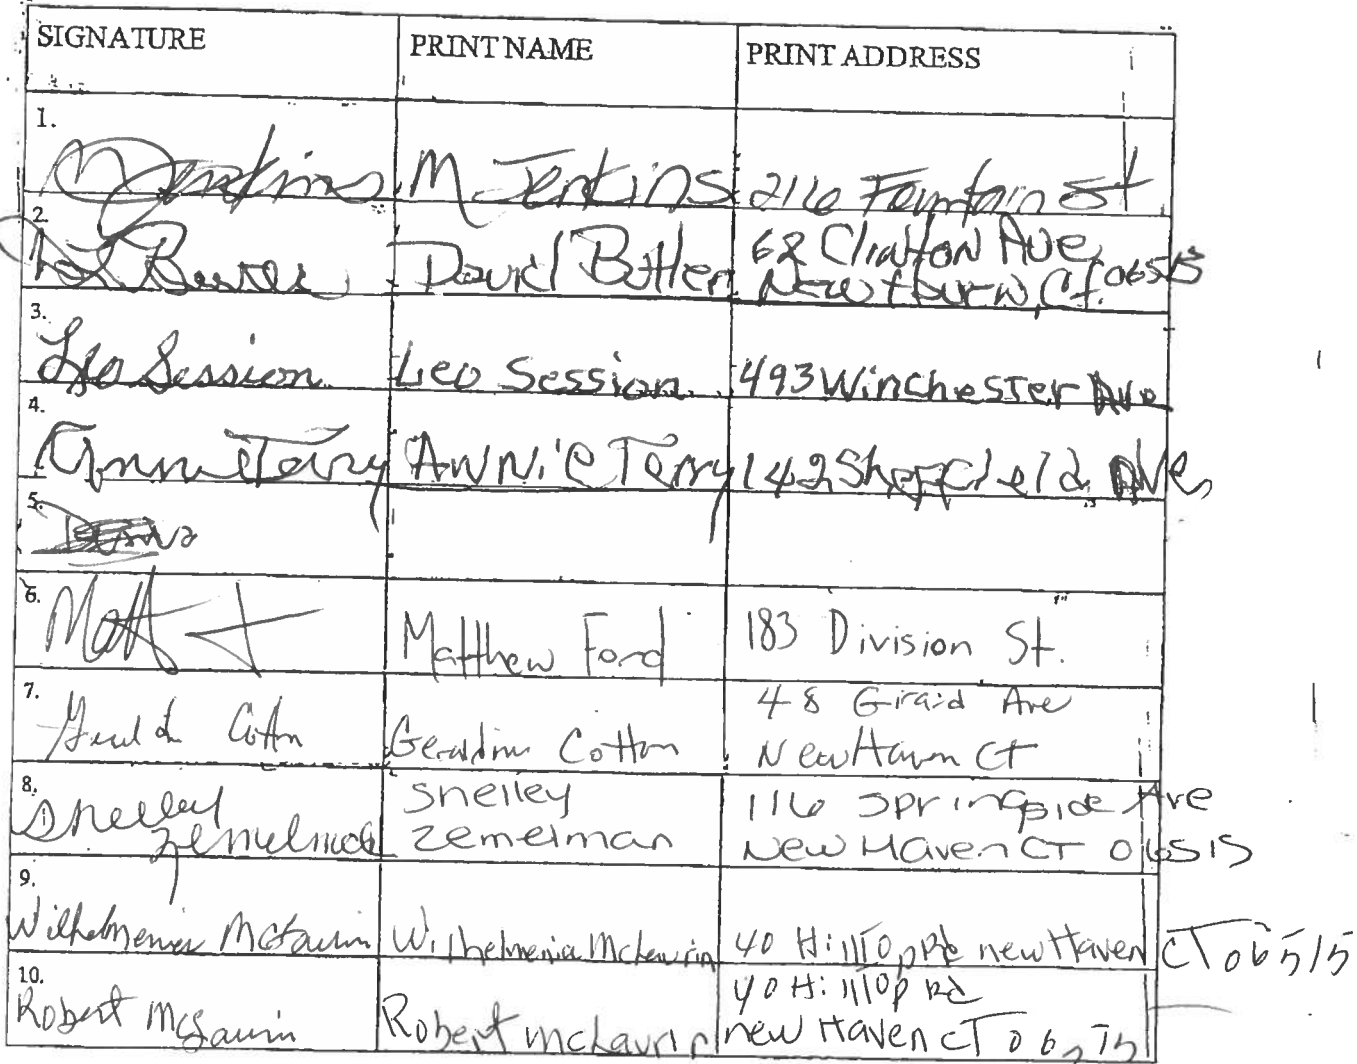 SIGNATURE PRINT NAME PRINT ADDRESS
1.
M Jenkins M Jenkins 216 Fountain St
2.
David Butler 68 Clinton Ave
New Haven, Ct. 06513
3.
Leo Session Leo Session 493 Winchester Ave
4.
Annie Terry Annie Terry 142 Sheffield Ave,
5.
6.
Matt Matthew Ford 183 Division St.
7.
Geraldine Cotton Geraldine Cotton 48 Girard Ave
New Haven CT
8.
Shelley Shelley 116 Springside Ave
Zemelman Zemelman New Haven CT 06515
9.
Wilhelmenia McLaurin Wilhelmenia McLaurin 40 Hilltop Rd new Haven CT 06515
10.
Robert McLaurin Robert McLaurin 40 Hilltop Rd
new Haven CT